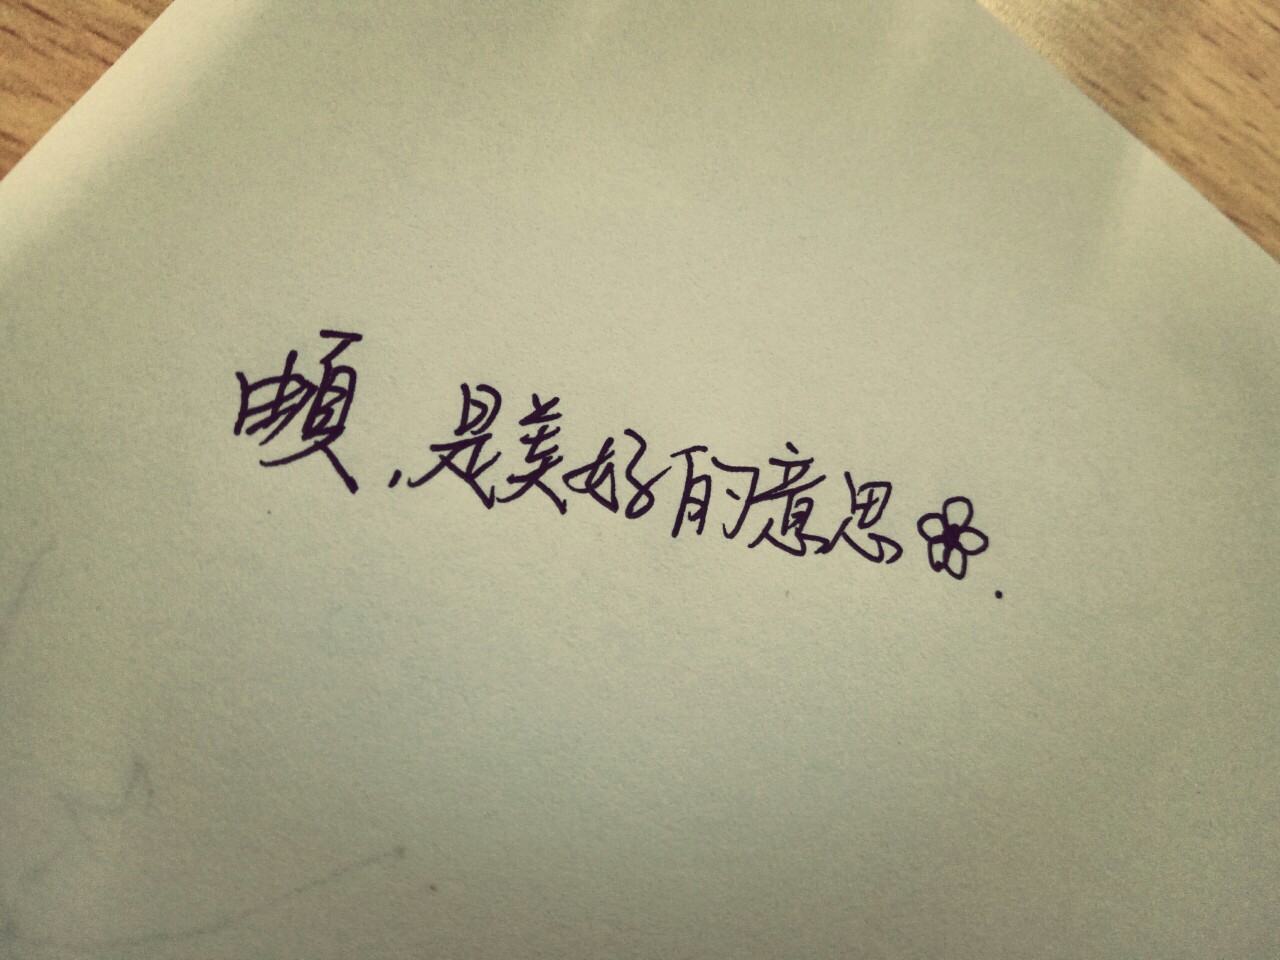 頔,是美好的意思.